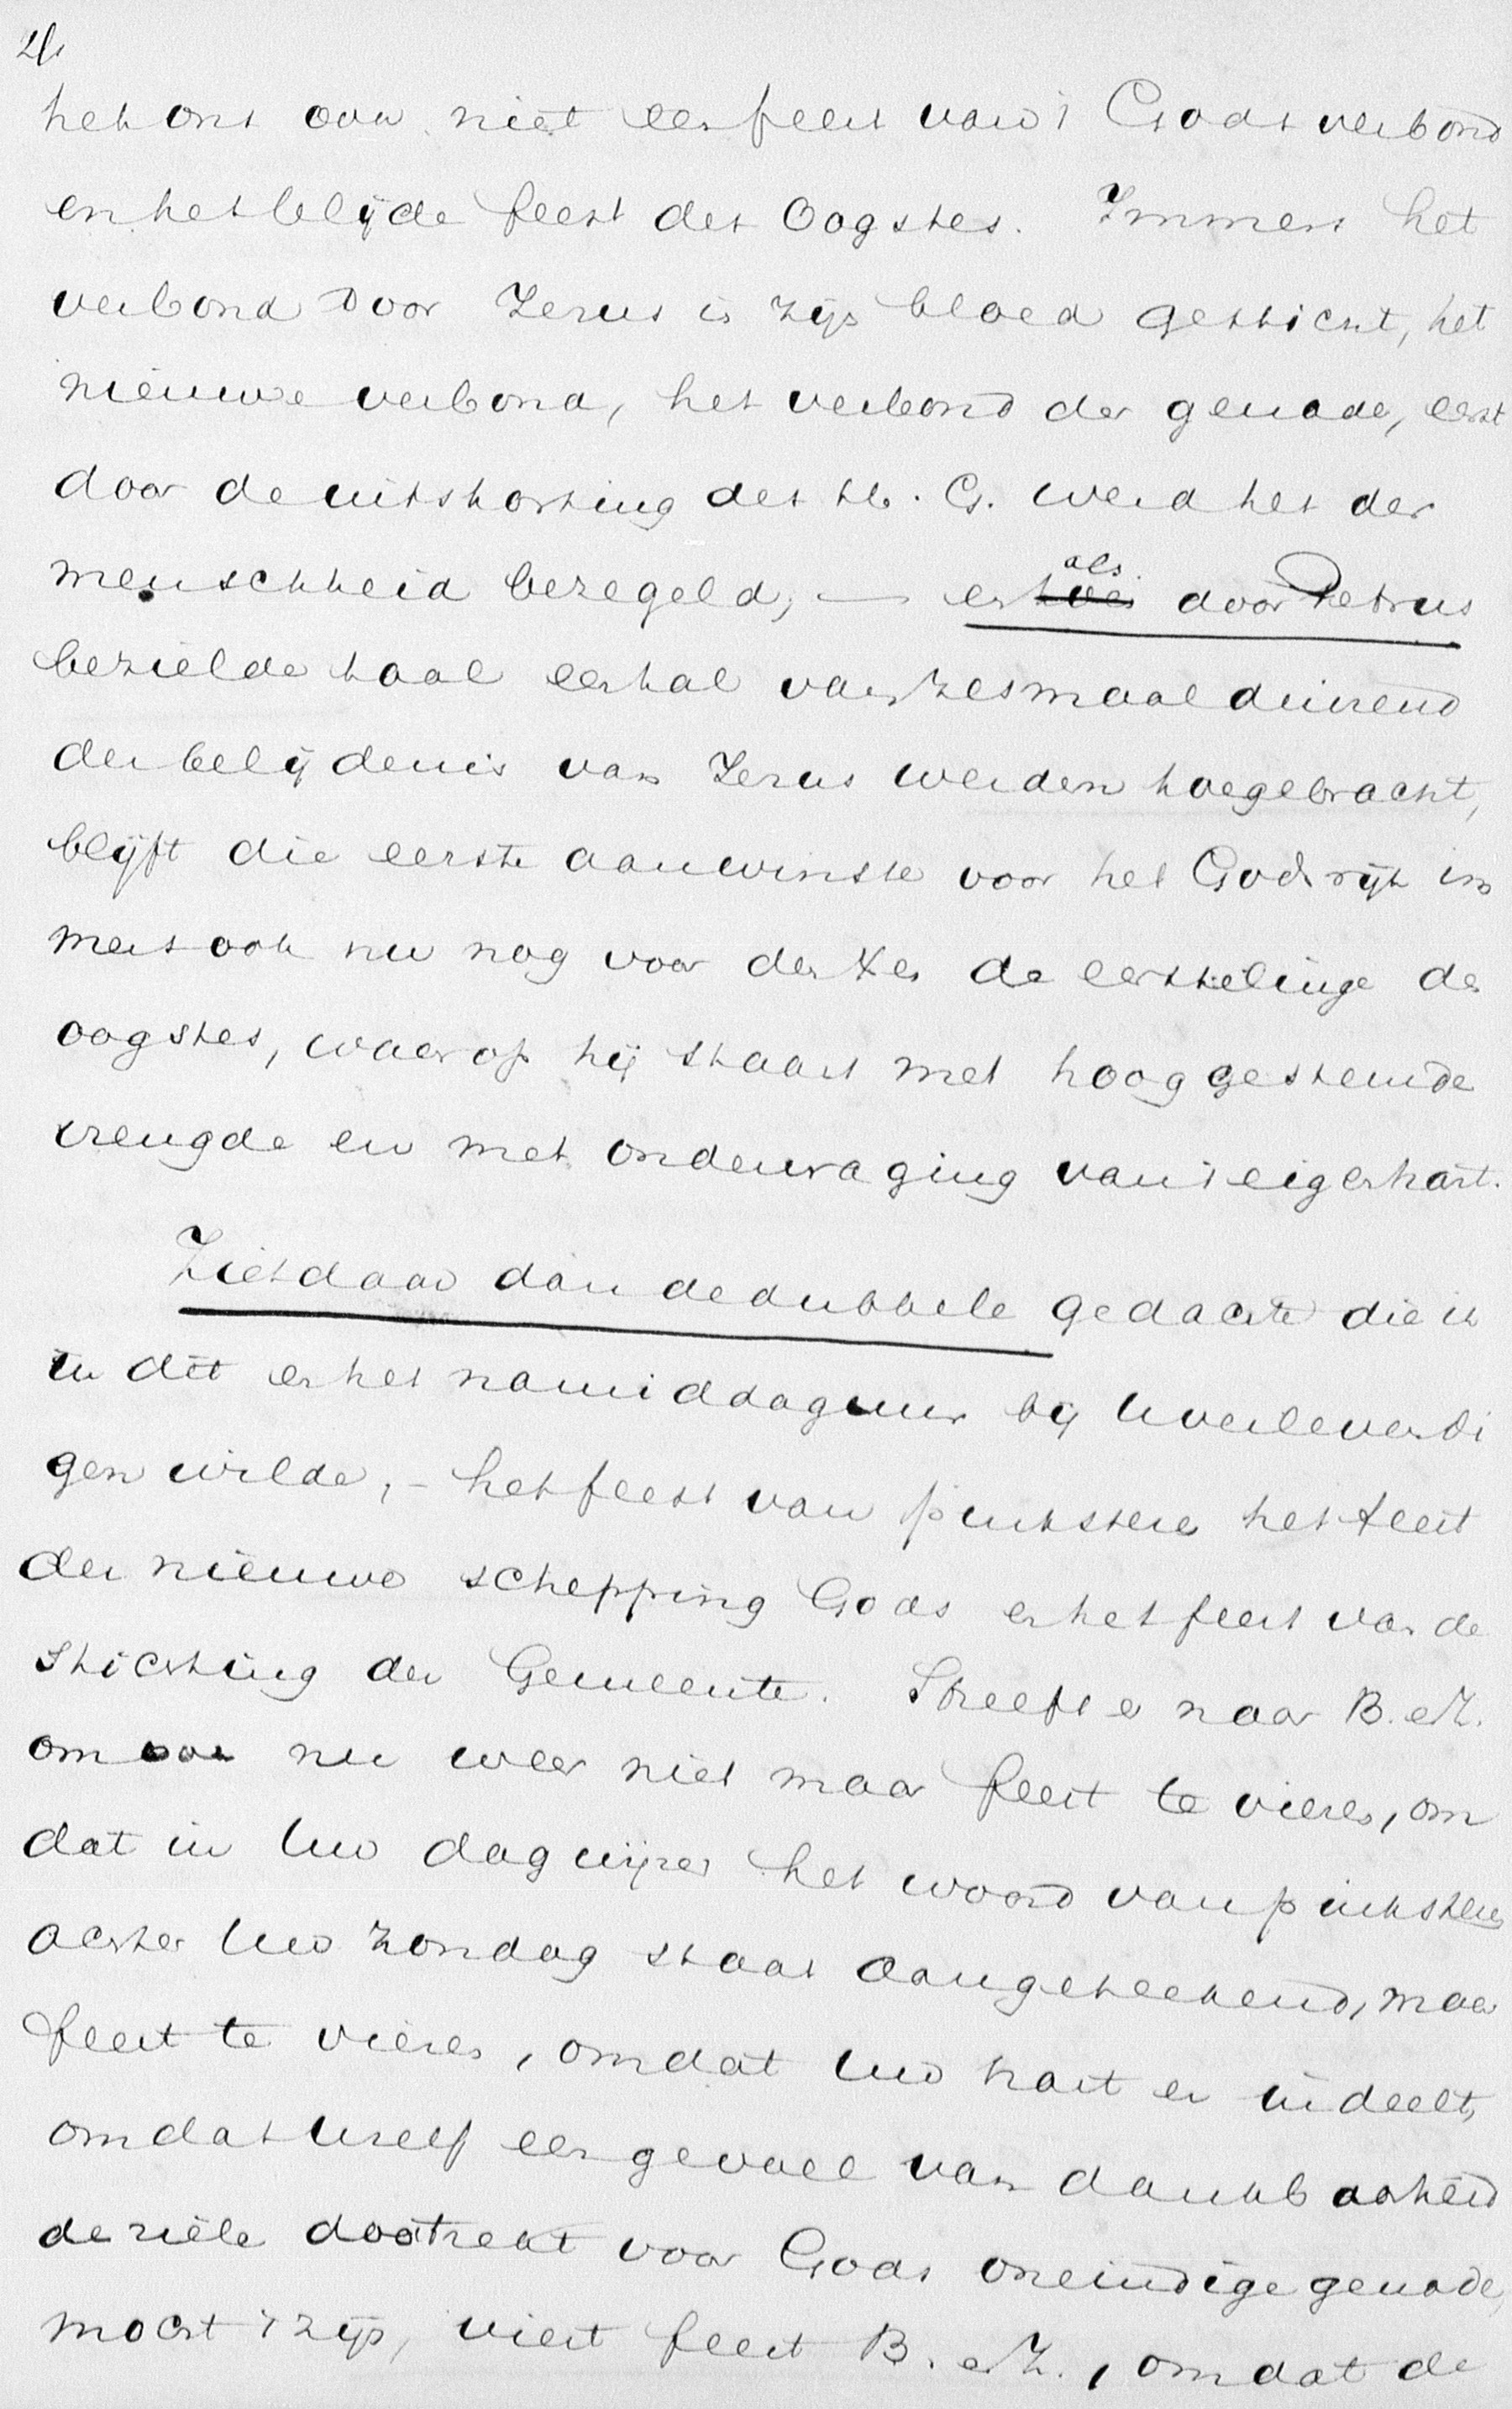 21.
het ons ook niet een feest van 't Godsverbond
en het blijde feest des Oogstes. Immers het
verbond door Jezus in zijn bloed gesticht, het
nieuwe verbond, het verbond der genade, eerst
door de uitstorting des H. G. werd het der
menschheid bezegeld, — en als door Petrus
bezielde taal een tal van zesmaal duizend
der belijdenis van Jezus werden toegebracht,
blijft die eerste aanwinste voor het Godsrijk im
mers ook nu nog voor den Xen de eerstelinge des
oogstes, waarop hij staart met hooggestemde
vreugde en met ondervraging van 't eigen hart.
Ziet daar dan de dubbele gedachte die ik
in dit en het namiddaguur bij U verlevendi
gen wilde, - het feest van pinksteren het feest
der nieuwe schepping Gods en het feest van de
stichting der Gemeente. Streeft er naar B. e Z.
om nu weer niet maar feest te vieren, om
dat in Uw dagwijzer het woord van pinksteren
achter Uw Zondag staat aangeteekend, maar
feest te vieren, omdat Uw hart er in deelt,
omdat Uzelf een gevoel van dankbaarheid
de ziele doortrekt voor Gods oneindige genade,
mocht 't zijn, viert feest B. e Z., omdat de